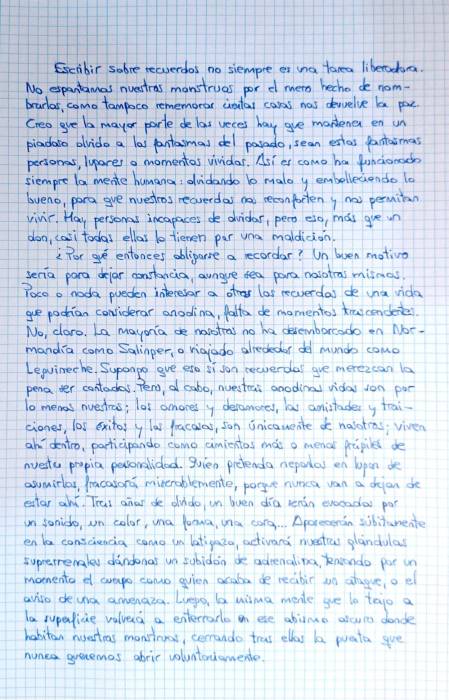 Escribir sobre recuerdos no siempre es una tarea liberadora.
No espantamos nuestros monstruos por el mero hecho de nom-
brarlos, como tampoco rememorar ciertas cosas nos devuelve la paz.
Creo que la mayor parte de las veces hay que mantener en un
piadoso olvido a los fantasmas del pasado, sean estos fantasmas
personas, lugares o momentos vividos. Así es como ha funcionado
siempre la mente humana: olvidando lo malo y embelleciendo lo
bueno, para que nuestros recuerdos nos reconforten y nos permitan
vivir. Hay personas incapaces de olvidar, pero eso, más que un
don, casi todas ellas lo tienen por una maldición.
¿Por qué entonces obligarse a recordar? Un buen motivo
sería para dejar constancia, aunque sea para nosotros mismos.
Poco o nada pueden interesar a otros los recuerdos de una vida
que podrían considerar anodina, falta de momentos trascendentes.
No, claro. La mayoría de nosotros no ha desembarcado en Nor-
mandía como Salinger, o viajado alrededor del mundo como
Leguineche. Supongo que esos sí son recuerdos que merezcan la
pena ser contados. Pero, al cabo, nuestras anodinas vidas son por
lo menos nuestras; los amores y desamores, las amistades y trai-
ciones, los éxitos y los fracasos, son únicamente de nosotros; viven
ahí dentro, participando como cimientos más o menos frágiles de
nuestra propia personalidad. Quien pretenda negarlos en lugar de
asumirlos, fracasará miserablemente, porque nunca van a dejar de
estar ahí. Tras años de olvido, un buen día serán evocados por
un sonido, un color, una forma, una cara... Aparecerán súbitamente
en la consciencia como un latigazo, activará nuestras glándulas
suprarrenales dándonos un subidón de adrenalina, tensando por un
momento el cuerpo como quien acaba de recibir un ataque, o el
aviso de una amenaza. Luego, la misma mente que lo trajo a
la superficie volverá a enterrarlo en ese abismo oscuro donde
habitan nuestros monstruos, cerrando tras ellos la puerta que
nunca queremos abrir voluntariamente.